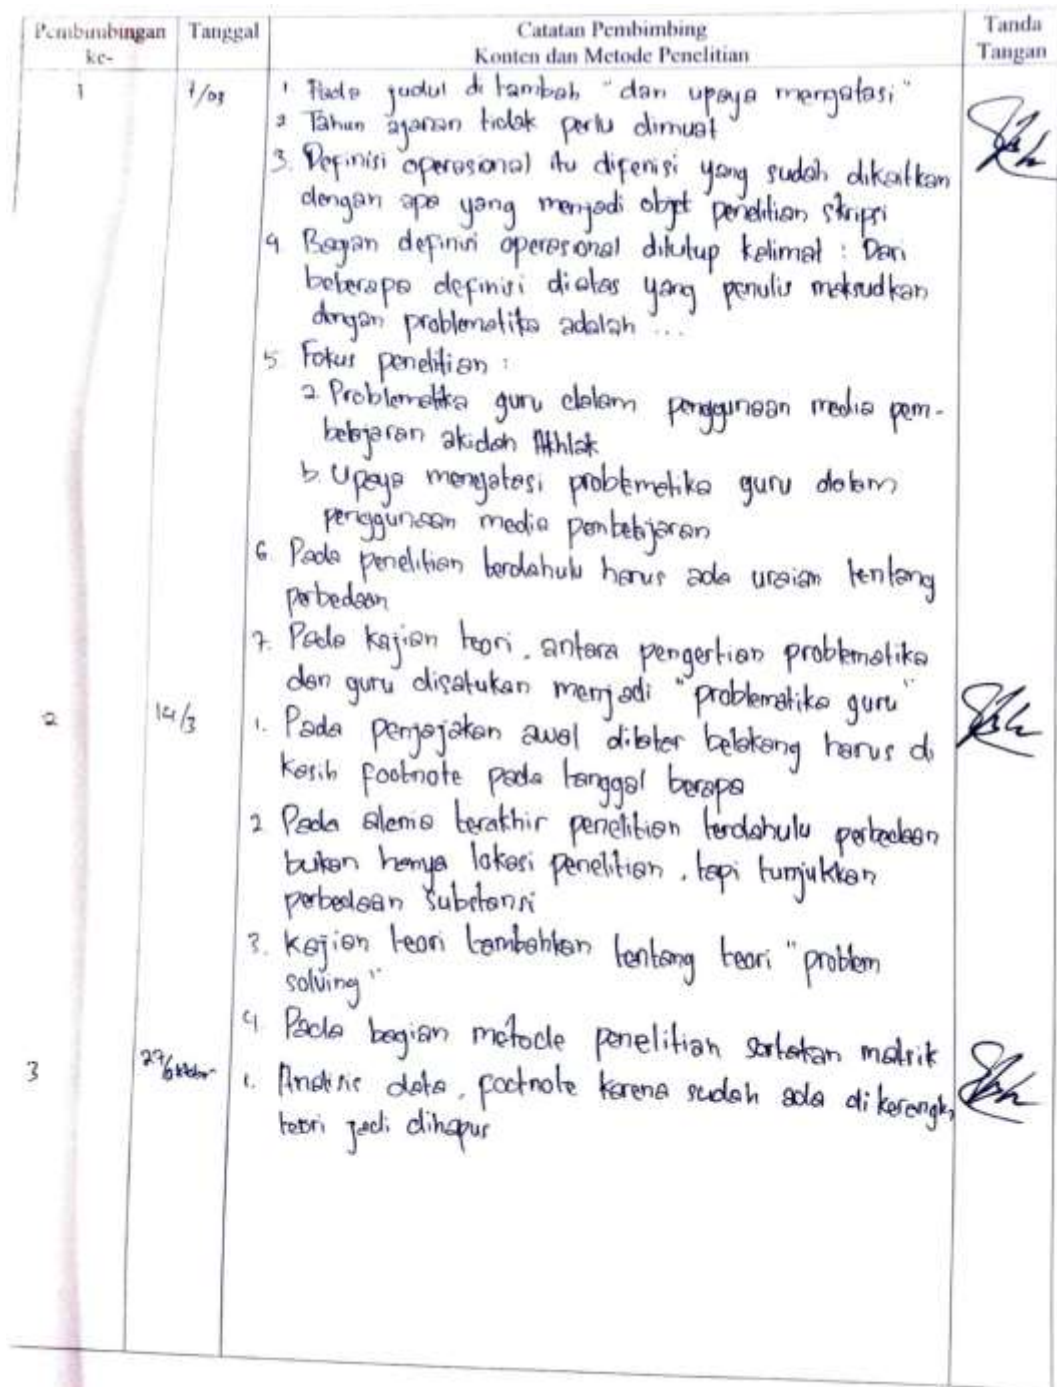 Pembimbingan Tanggal Catatan Pembimbing Tanda
ke- Konten dan Metode Penelitian Tangan
1 7/03 1 Pada judul di tambah "dan upaya mengatasi"
2 Tahun ajaran tidak perlu dimuat
3. Definisi operasional itu difenisi yang sudah dikaitkan
dengan apa yang menjadi objet penelitian skripsi
4 Bagan definisi operasional ditutup kalimat : Dari
beberapa definisi diatas yang penulis maksudkan
dengan problematika adalah ...
5 Fokus penelitian :
a. Problematika guru dalam penggunaan media pem-
belajaran akidah Akhlak
b. Upaya mengatasi problematika guru dalam
penggunaan media pembelajaran
6. Pada penelitian terdahulu harus ada uraian tentang
perbedaan
7. Pada kajian teori, antara pengertian problematika
dan guru disatukan menjadi "problematika guru"
2 14/3 1. Pada penjajakan awal dilatar belakang harus di
kasih footnote pada tanggal berapa
2 Pada alenia terakhir penelitian terdahulu perbedaan
bukan hanya lokasi penelitian, tapi tunjukkan
perbedaan substansi
3. Kajian teori tambahkan tentang teori "problem
solving"
4 Pada bagian metode penelitian sertakan matrik
3 27/Oktober 1. Analisis data, footnote karena sudah ada di kerangka
teori jadi dihapus